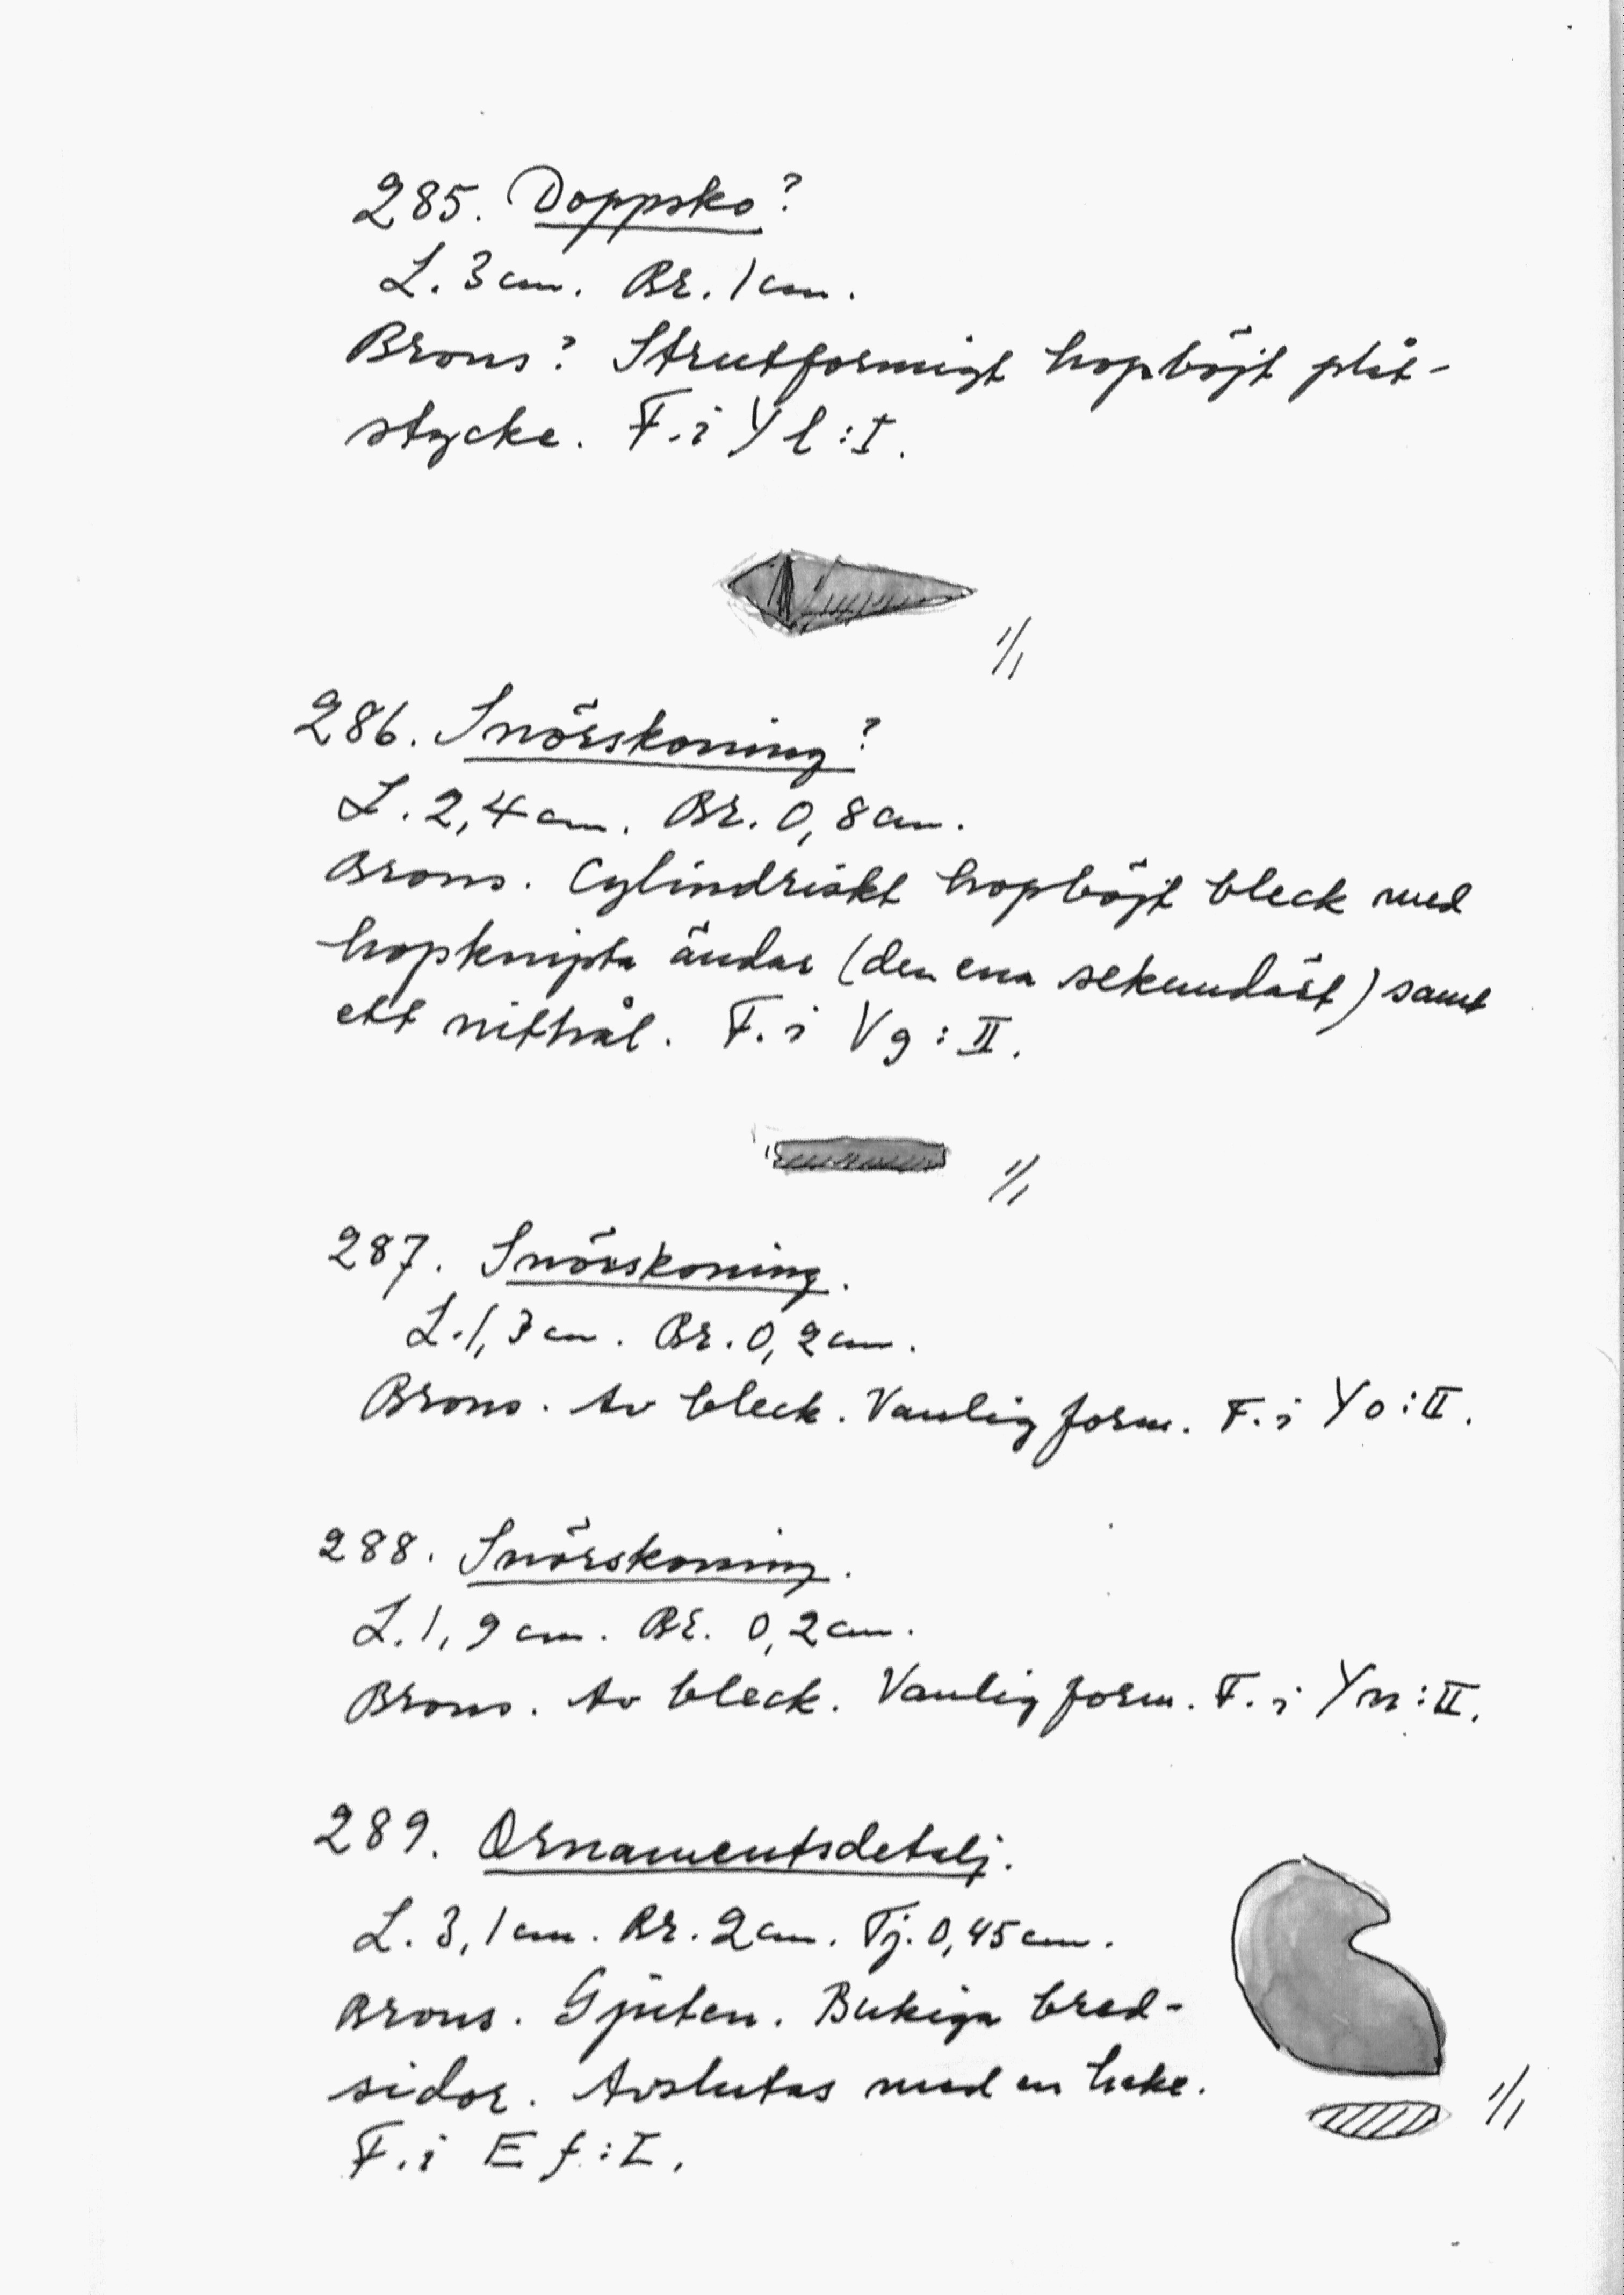 285. Doppsko?
L. 3 cm. Br. 1 cm.
Brons? Strutformigt hopböjt plåt-
stycke. F. i Y l : I.
1/1
286. Snörskoning?
L. 2,4 cm. Br. 0,8 cm.
Brons. Cylindriskt hopböjt bleck med
hopknipta ändar (den ena sekundärt) samt
ett nithål. F. i V g : II.
1/1
287. Snörskoning.
L. 1,3 cm. Br. 0,2 cm.
Brons. Av bleck. Vanlig form. F. i Y o : II.
288. Snörskoning.
L. 1,9 cm. Br. 0,2 cm.
Brons. Av bleck. Vanlig form. F. i Y n : II.
289. Ornamentsdetalj.
L. 3,1 cm. Br. 2 cm. Tj. 0,45 cm.
Brons. Gjuten. Bukiga bred-
sidor. Avslutas med en hake.
F. i E f : I.
1/1